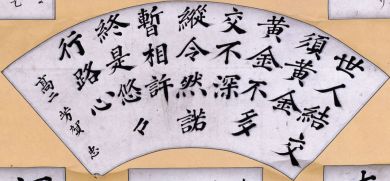 世人結交
須黄金
黄金不多
交不深
縱令然諾
暫相許
終是悠々
行路心
高二 芳賀 忠